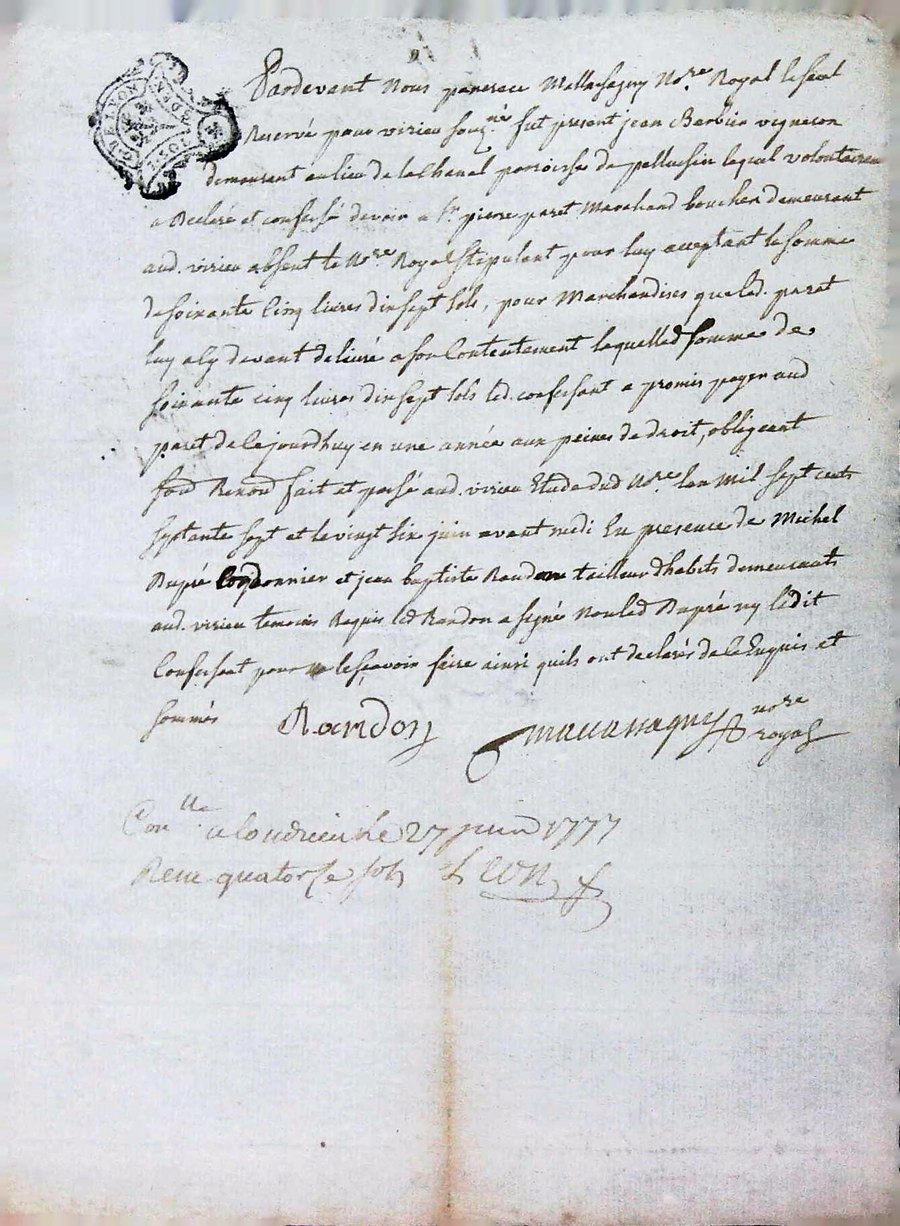 G. DE LYON
Pardevant Nous panerace Mellachagny No.re Royal le seul
Reservé pour virieu souz.né fut present jean Barbier vigneron
demeurant au lieu de la Chanal parroisse de pellussin lequel volontairem
a Declaré et confessé devoir a Sr. piere paret Marchand boucher demeurant
aud. virieu absent le No.re Royal stipulant pour luy acceptant la somme
de soixante Cinq livres dix sept sols, pour Marchandises que led. paret
luy a Cy devant delivré a son Contentement laquelled somme de
soixante cinq livres dix sept sols led. confessant a promis payer aud
paret de Cejourdhuy en une année aux peines de droit, obligeant
fait et passé aud. virieu Etude dud No.re lan Mil sept cents
septante sept et le vingt six juin avant midi En presence de Michel
Dupré Cordonnier et jean baptiste Randon tailleur dhabits demeurants
aud. virieu temoins Requis led Randon a signé Non led Dupré ny ledit
Confessant pour ne le sçavoir faire ainsi quils ont declarés de ce Enquis et
sommés
Randon
nore
royal
Con.lle a Condrieu le 27 juin 1777
Reçu quatorse sols